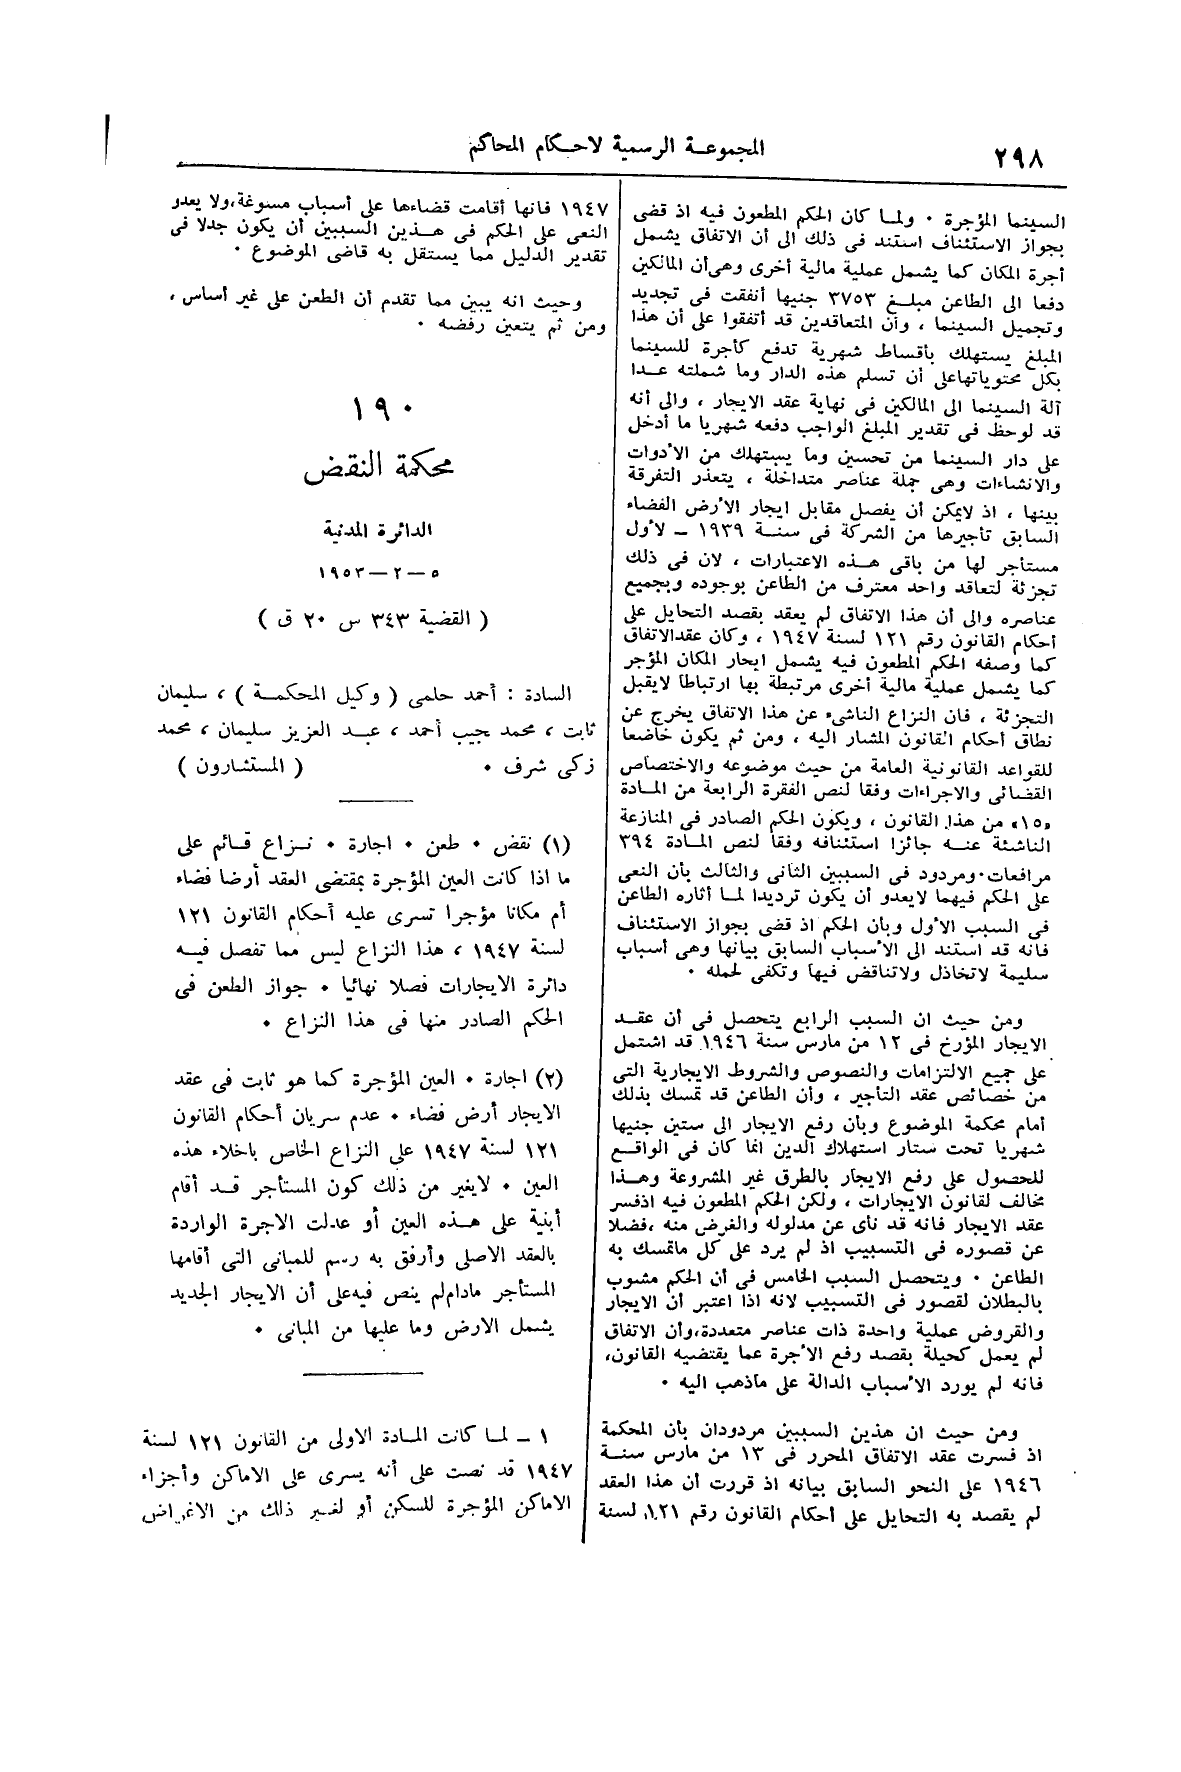 ٢٩٨
المجموعة الرسمية لاحكام المحاكم
السينما المؤجرة ٠ ولما كان الحكم المطعون فيه اذ قضى
بجواز الاستئناف استند فى ذلك الى أن الاتفاق يشمل
أجرة المكان كما يشمل عملية مالية أخرى وهى أن المالكين
دفعا الى الطاعن مبلغ ٣٧٥٣ جنيها أنفقت فى تجديد
وتجميل السينما ، وأن المتعاقدين قد أتفقوا على أن هذا
المبلغ يستهلك بأقساط شهرية تدفع كأجرة للسينما
بكل محتوياتها على أن تسلم هذه الدار وما شملته عدا
آلة السينما الى المالكين فى نهاية عقد الايجار ، والى أنه
قد لوحظ فى تقدير المبلغ الواجب دفعه شهريا ما أدخل
على دار السينما من تحسين وما يستهلك من الأدوات
والانشاءات وهى جملة عناصر متداخلة ، يتعذر التفرقة
بينها ، اذ لايمكن أن يفصل مقابل ايجار الأرض الفضاء
السابق تأجيرها من الشركة فى سنة ١٩٣٩ ــ لأول
مستأجر لها من باقى هذه الاعتبارات ، لان فى ذلك
تجزئة لتعاقد واحد معترف من الطاعن بوجوده وبجميع
عناصره والى أن هذا الاتفاق لم يعقد بقصد التحايل على
أحكام القانون رقم ١٢١ لسنة ١٩٤٧ ، وكان عقد الاتفاق
كما وصفه الحكم المطعون فيه يشمل ايجار المكان المؤجر
كما يشمل عملية مالية أخرى مرتبطة بها ارتباطا لايقبل
التجزئة ، فان النزاع الناشىء عن هذا الاتفاق يخرج عن
نطاق أحكام القانون المشار اليه ، ومن ثم يكون خاضعا
للقواعد القانونية العامة من حيث موضوعه والاختصاص
القضائى والاجراءات وفقا لنص الفقرة الرابعة من المادة
«١٥» من هذا القانون ، ويكون الحكم الصادر فى المنازعة
الناشئة عنه جائزا استئنافه وفقا لنص المادة ٣٩٤
مرافعات٠ ومردود فى السببين الثانى والثالث بأن النعى
على الحكم فيهما لايعدو أن يكون ترديدا لما أثاره الطاعن
فى السبب الأول وبأن الحكم اذ قضى بجواز الاستئناف
فانه قد استند الى الأسباب السابق بيانها وهى أسباب
سليمة لاتخاذل ولاتناقض فيها وتكفى لحمله ٠
ومن حيث ان السبب الرابع يتحصل فى أن عقد
الايجار المؤرخ فى ١٢ من مارس سنة ١٩٤٦ قد اشتمل
على جميع الالتزامات والنصوص والشروط الايجارية التى
من خصائص عقد التأجير ، وأن الطاعن قد تمسك بذلك
أمام محكمة الموضوع وبأن رفع الايجار الى ستين جنيها
شهريا تحت ستار استهلاك الدين انما كان فى الواقع
للحصول على رفع الايجار بالطرق غير المشروعة وهذا
مخالف لقانون الايجارات ، ولكن الحكم المطعون فيه اذ فسر
عقد الايجار فانه قد نأى عن مدلوله والغرض منه ،فضلا
عن قصوره فى التسبيب اذ لم يرد على كل ماتمسك به
الطاعن ٠ ويتحصل السبب الخامس فى أن الحكم مشوب
بالبطلان لقصور فى التسبيب لانه اذا اعتبر أن الايجار
والقروض عملية واحدة ذات عناصر متعددة،وأن الاتفاق
لم يعمل كحيلة بقصد رفع الأجرة عما يقتضيه القانون،
فانه لم يورد الأسباب الدالة على ماذهب اليه ٠
ومن حيث ان هذين السببين مردودان بأن المحكمة
اذ فسرت عقد الاتفاق المحرر فى ١٣ من مارس سنة
١٩٤٦ على النحو السابق بيانه اذ قررت أن هذا العقد
لم يقصد به التحايل على أحكام القانون رقم ١٢١ لسنة
١٩٤٧ فانها أقامت قضاءها على أسباب مسوغة،ولا يعدو
النعى على الحكم فى هذين السببين أن يكون جدلا فى
تقدير الدليل مما يستقل به قاضى الموضوع ٠
وحيث انه يبين مما تقدم أن الطعن على غير أساس ،
ومن ثم يتعين رفضه ٠
١٩٠
محكمة النقض
الدائرة المدنية
٥ ــ ٢ ــ ١٩٥٣
( القضية ٣٤٣ س ٢٠ ق )
السادة : أحمد حلمى ( وكيل المحكمة ) ، سليمان
ثابت ، محمد نجيب أحمد ، عبد العزيز سليمان ، محمد
زكى شرف ٠ ( المستشارون )
(١) نقض ٠ طعن ٠ اجارة ٠ نزاع قائم على
ما اذا كانت العين المؤجرة بمقتضى العقد أرضا فضاء
أم مكانا مؤجرا تسرى عليه أحكام القانون ١٢١
لسنة ١٩٤٧ ، هذا النزاع ليس مما تفصل فيه
دائرة الايجارات فصلا نهائيا ٠ جواز الطعن فى
الحكم الصادر منها فى هذا النزاع ٠
(٢) اجارة ٠ العين المؤجرة كما هو ثابت فى عقد
الايجار أرض فضاء ٠ عدم سريان أحكام القانون
١٢١ لسنة ١٩٤٧ على النزاع الخاص باخلاء هذه
العين ٠ لايغير من ذلك كون المستأجر قد أقام
أبنية على هذه العين أو عدلت الاجرة الواردة
بالعقد الاصلى وأرفق به رسم للمبانى التى أقامها
المستأجر مادام لم ينص فيه على أن الايجار الجديد
يشمل الارض وما عليها من المبانى ٠
١ ــ لما كانت المادة الاولى من القانون ١٢١ لسنة
١٩٤٧ قد نصت على أنه يسرى على الاماكن وأجزاء
الاماكن المؤجرة للسكن أو لغير ذلك من الاغراض